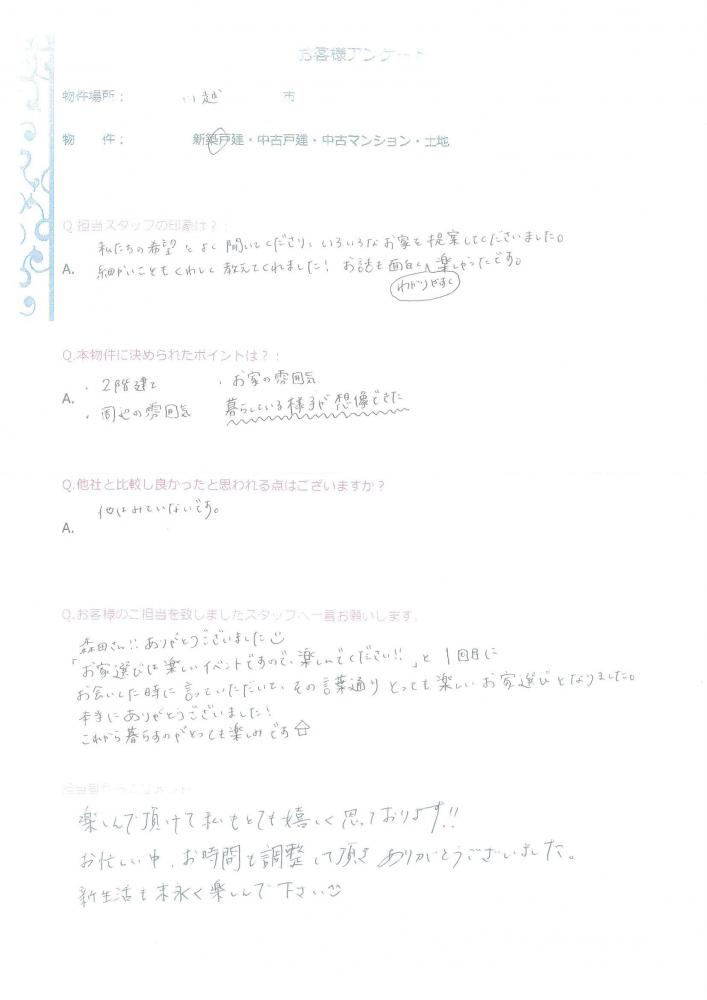 お客様アンケート
物件場所： 川越 市
物 件： 新築戸建・中古戸建・中古マンション・土地
Q.担当スタッフの印象は？：
私たちの希望をよく聞いてくださり、いろいろなお家を提案してくださいました。
A. 細かいこともくわしく教えてくれました！ お話も面白く、楽しかったです。
わかりやすく
Q.本物件に決められたポイントは？：
・2階建て ・お家の雰囲気
A.
・周辺の雰囲気 暮らしている様子が想像できた
Q.他社と比較し良かったと思われる点はございますか？
他はみていないです。
A.
Q.お客様のご担当を致しましたスタッフへ一言お願いします。
森田さん!! ありがとうございました
「お家選びは楽しいイベントですので、楽しんでください!!」と 1回目に
お会いした時に言っていただいて、その言葉通りとっても楽しいお家選びとなりました。
本当にありがとうございました！
これから暮らすのがとっても楽しみです
担当者からのコメント
楽しんで頂けて私もとても嬉しく思っております!!
お忙しい中、お時間も調整して頂きありがとうございました。
新生活も末永く楽しんで下さい